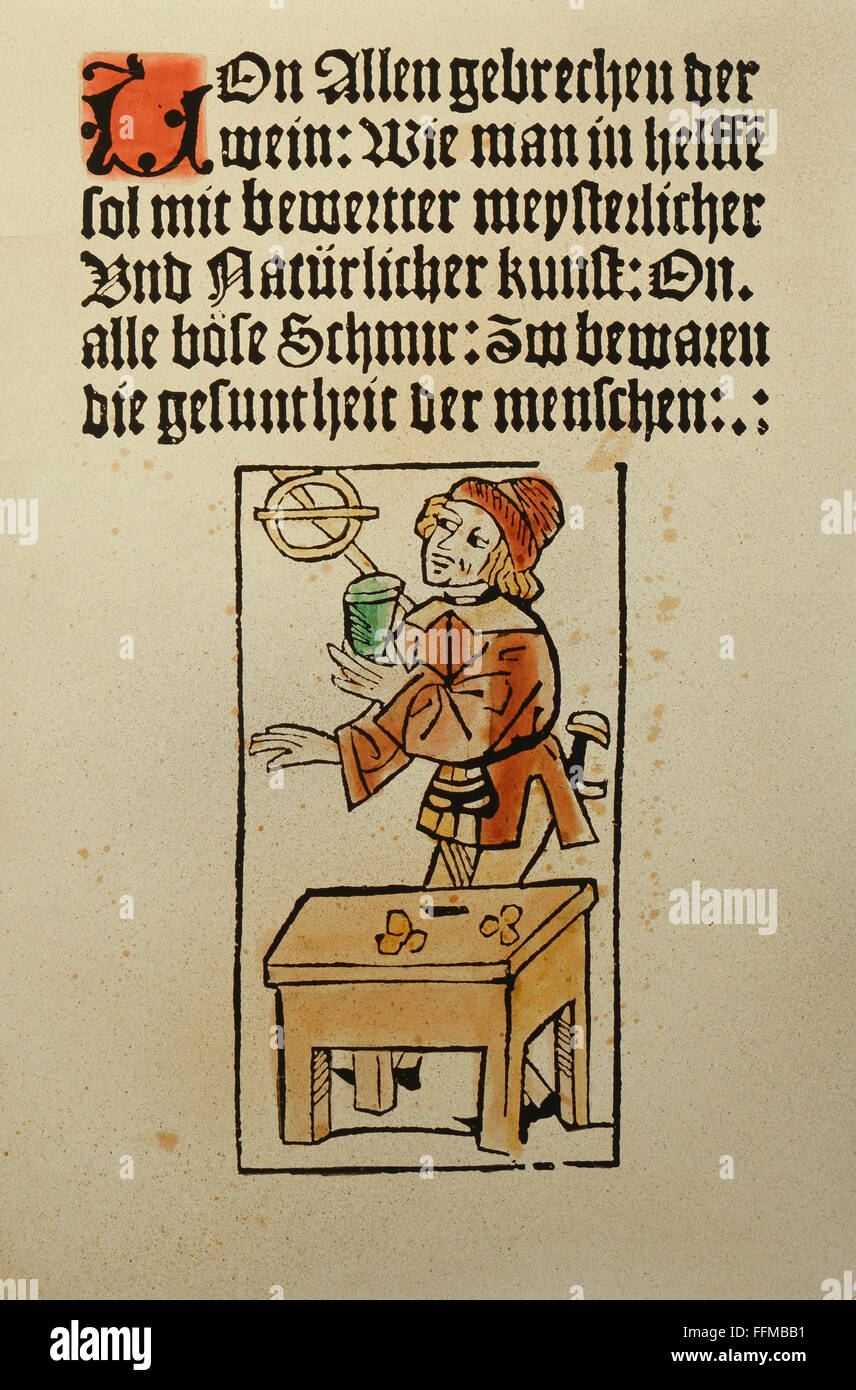 Von Allen gebrechen der
wein: Wie man in helffē
sol mit bewertter meysterlicher
Vnd Natürlicher kunst: On.
alle böse Schmir: Zw bewaren
die gesuntheit der menschen:.:
alamy
a
a
alamy
a
a
alamy
a
a
alamy
Image ID: FFMBB1
www.alamy.com